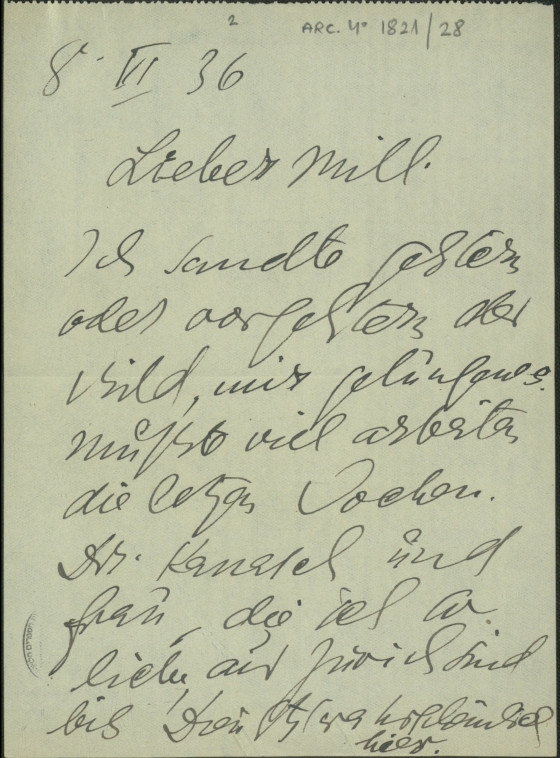 2
ARC. 4° 1821/28
8. VI 36
Lieber Mill.
Ich sandte gestern
oder vorgestern der
Bild, mir gelungenes.
Mußte viel arbeiten
die letzten Wochen.
Dr. und
Frau, die ich so
liebe, aus Zürich sind
bis wahrscheinlich
hier.